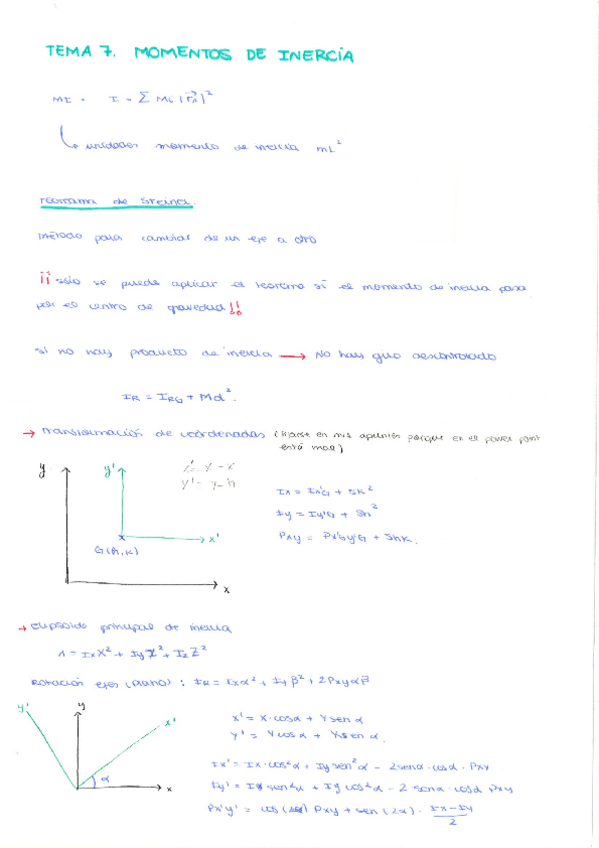 TEMA 7. MOMENTOS DE INERCÍA
MI = I = Σ Mi |ri|²
unidades momento de inercia mL²
Teorema de Steiner.
Método para cambiar de un eje a otro
¡¡ sólo se puede aplicar el teorema si el momento de inercia pasa
por el centro de gravedad!!
si no hay producto de inercia → No hay giro descontrolado
IR = IRG + Md².
→ Transformación de coordenadas (fijarse en mis apuntes porque en el power point
está mal)
y y'
x' = x - x
y' = y - h
x'
G(h,k)
x
Ix = Ix'G + Sk²
Iy = Iy'G + Sh²
Pxy = Px'Gy'G + Shk.
→ Elipsoide principal de inercia
1 = IxX² + IyY² + IzZ²
Rotación ejes (plano) : IR = Ixα² + Iyβ² + 2Pxyαβ
y' y x'
α x
x' = X·cosα + Y sen α
y' = Y cosα + X sen α
Ix' = Ix·cos²α + Iy sen²α - 2 senα·cosα·Pxy
Iy' = Ix sen²α + Iy cos²α - 2 senα·cosα Pxy
Px'y' = cos (2α) Pxy + sen (2α) · Ix-Iy/2